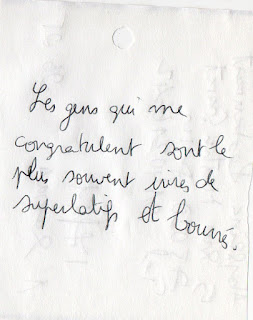 Les gens qui me
congratulent sont le
plus souvent ivres de
superlatifs et bourrés.